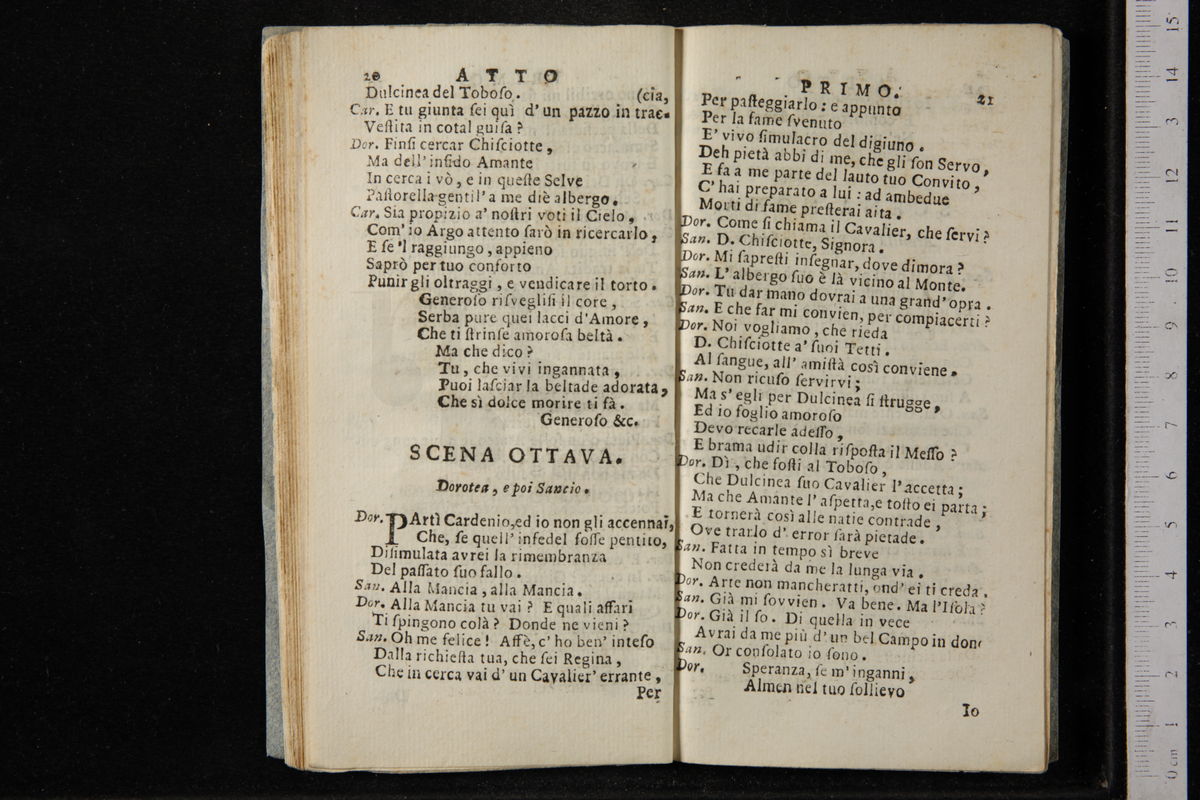 20 ATTO
Dulcinea del Toboſo. (cia,
Car. E tu giunta ſei quì d' un pazzo in trac-
Veſtita in cotal guiſa?
Dor. Finſi cercar Chiſciotte,
Ma dell' infido Amante
In cerca i vò, e in queſte Selve
Paſtorella gentil' a me diè albergo.
Car. Sia propizio a' noſtri voti il Cielo,
Com' io Argo attento ſarò in ricercarlo,
E ſe 'l raggiungo, appieno
Saprò per tuo conforto
Punir gli oltraggi, e vendicare il torto.
Generoſo riſveglisi il core,
Serba pure quei lacci d'Amore,
Che ti ſtrinſe amoroſa beltà.
Ma che dico?
Tu, che vivi ingannata,
Puoi laſciar la beltade adorata,
Che sì dolce morire ti fà.
Generoſo &c.
SCENA OTTAVA.
Dorotea, e poi Sancio.
Dor. PArtì Cardenio, ed io non gli accennai,
Che, ſe quell' infedel foſſe pentito,
Diſimulata avrei la rimembranza
Del paſſato ſuo fallo.
San. Alla Mancia, alla Mancia.
Dor. Alla Mancia tu vai? E quali affari
Ti ſpingono colà? Donde ne vieni?
San. Oh me felice! Affè, c' ho ben' inteſo
Dalla richieſta tua, che ſei Regina,
Che in cerca vai d' un Cavalier' errante,
Per
PRIMO. 21
Per paſteggiarlo: e appunto
Per la fame ſvenuto
E' vivo ſimulacro del digiuno.
Deh pietà abbi di me, che gli ſon Servo,
E fa a me parte del lauto tuo Convito,
C' hai preparato a lui: ad ambedue
Morti di fame preſterai aita.
Dor. Come ſi chiama il Cavalier, che ſervi?
San. D. Chiſciotte, Signora.
Dor. Mi ſapreſti inſegnar, dove dimora?
San. L' albergo ſuo è là vicino al Monte.
Dor. Tu dar mano dovrai a una grand' opra.
San. E che far mi convien, per compiacerti?
Dor. Noi vogliamo, che rieda
D. Chiſciotte a' ſuoi Tetti.
Al ſangue, all' amiſtà così conviene.
San. Non ricuſo ſervirvi;
Ma s' egli per Dulcinea ſi ſtrugge,
Ed io foglio amoroſo
Devo recarle adeſſo,
E brama udir colla riſpoſta il Meſſo?
Dor. Dì, che foſti al Toboſo,
Che Dulcinea ſuo Cavalier l'accetta;
Ma che Amante l' aſpetta, e toſto ei parta;
E tornerà così alle natie contrade,
Ove trarlo d' error ſarà pietade.
San. Fatta in tempo sì breve
Non crederà da me la lunga via.
Dor. Arte non mancheratti, ond' ei ti creda.
San. Già mi ſovvien. Va bene. Ma l'Iſola?
Dor. Già il ſo. Di quella in vece
Avrai da me più d' un bel Campo in dono
San. Or conſolato io ſono.
Dor. Speranza, ſe m' inganni,
Almen nel tuo ſollievo
Io